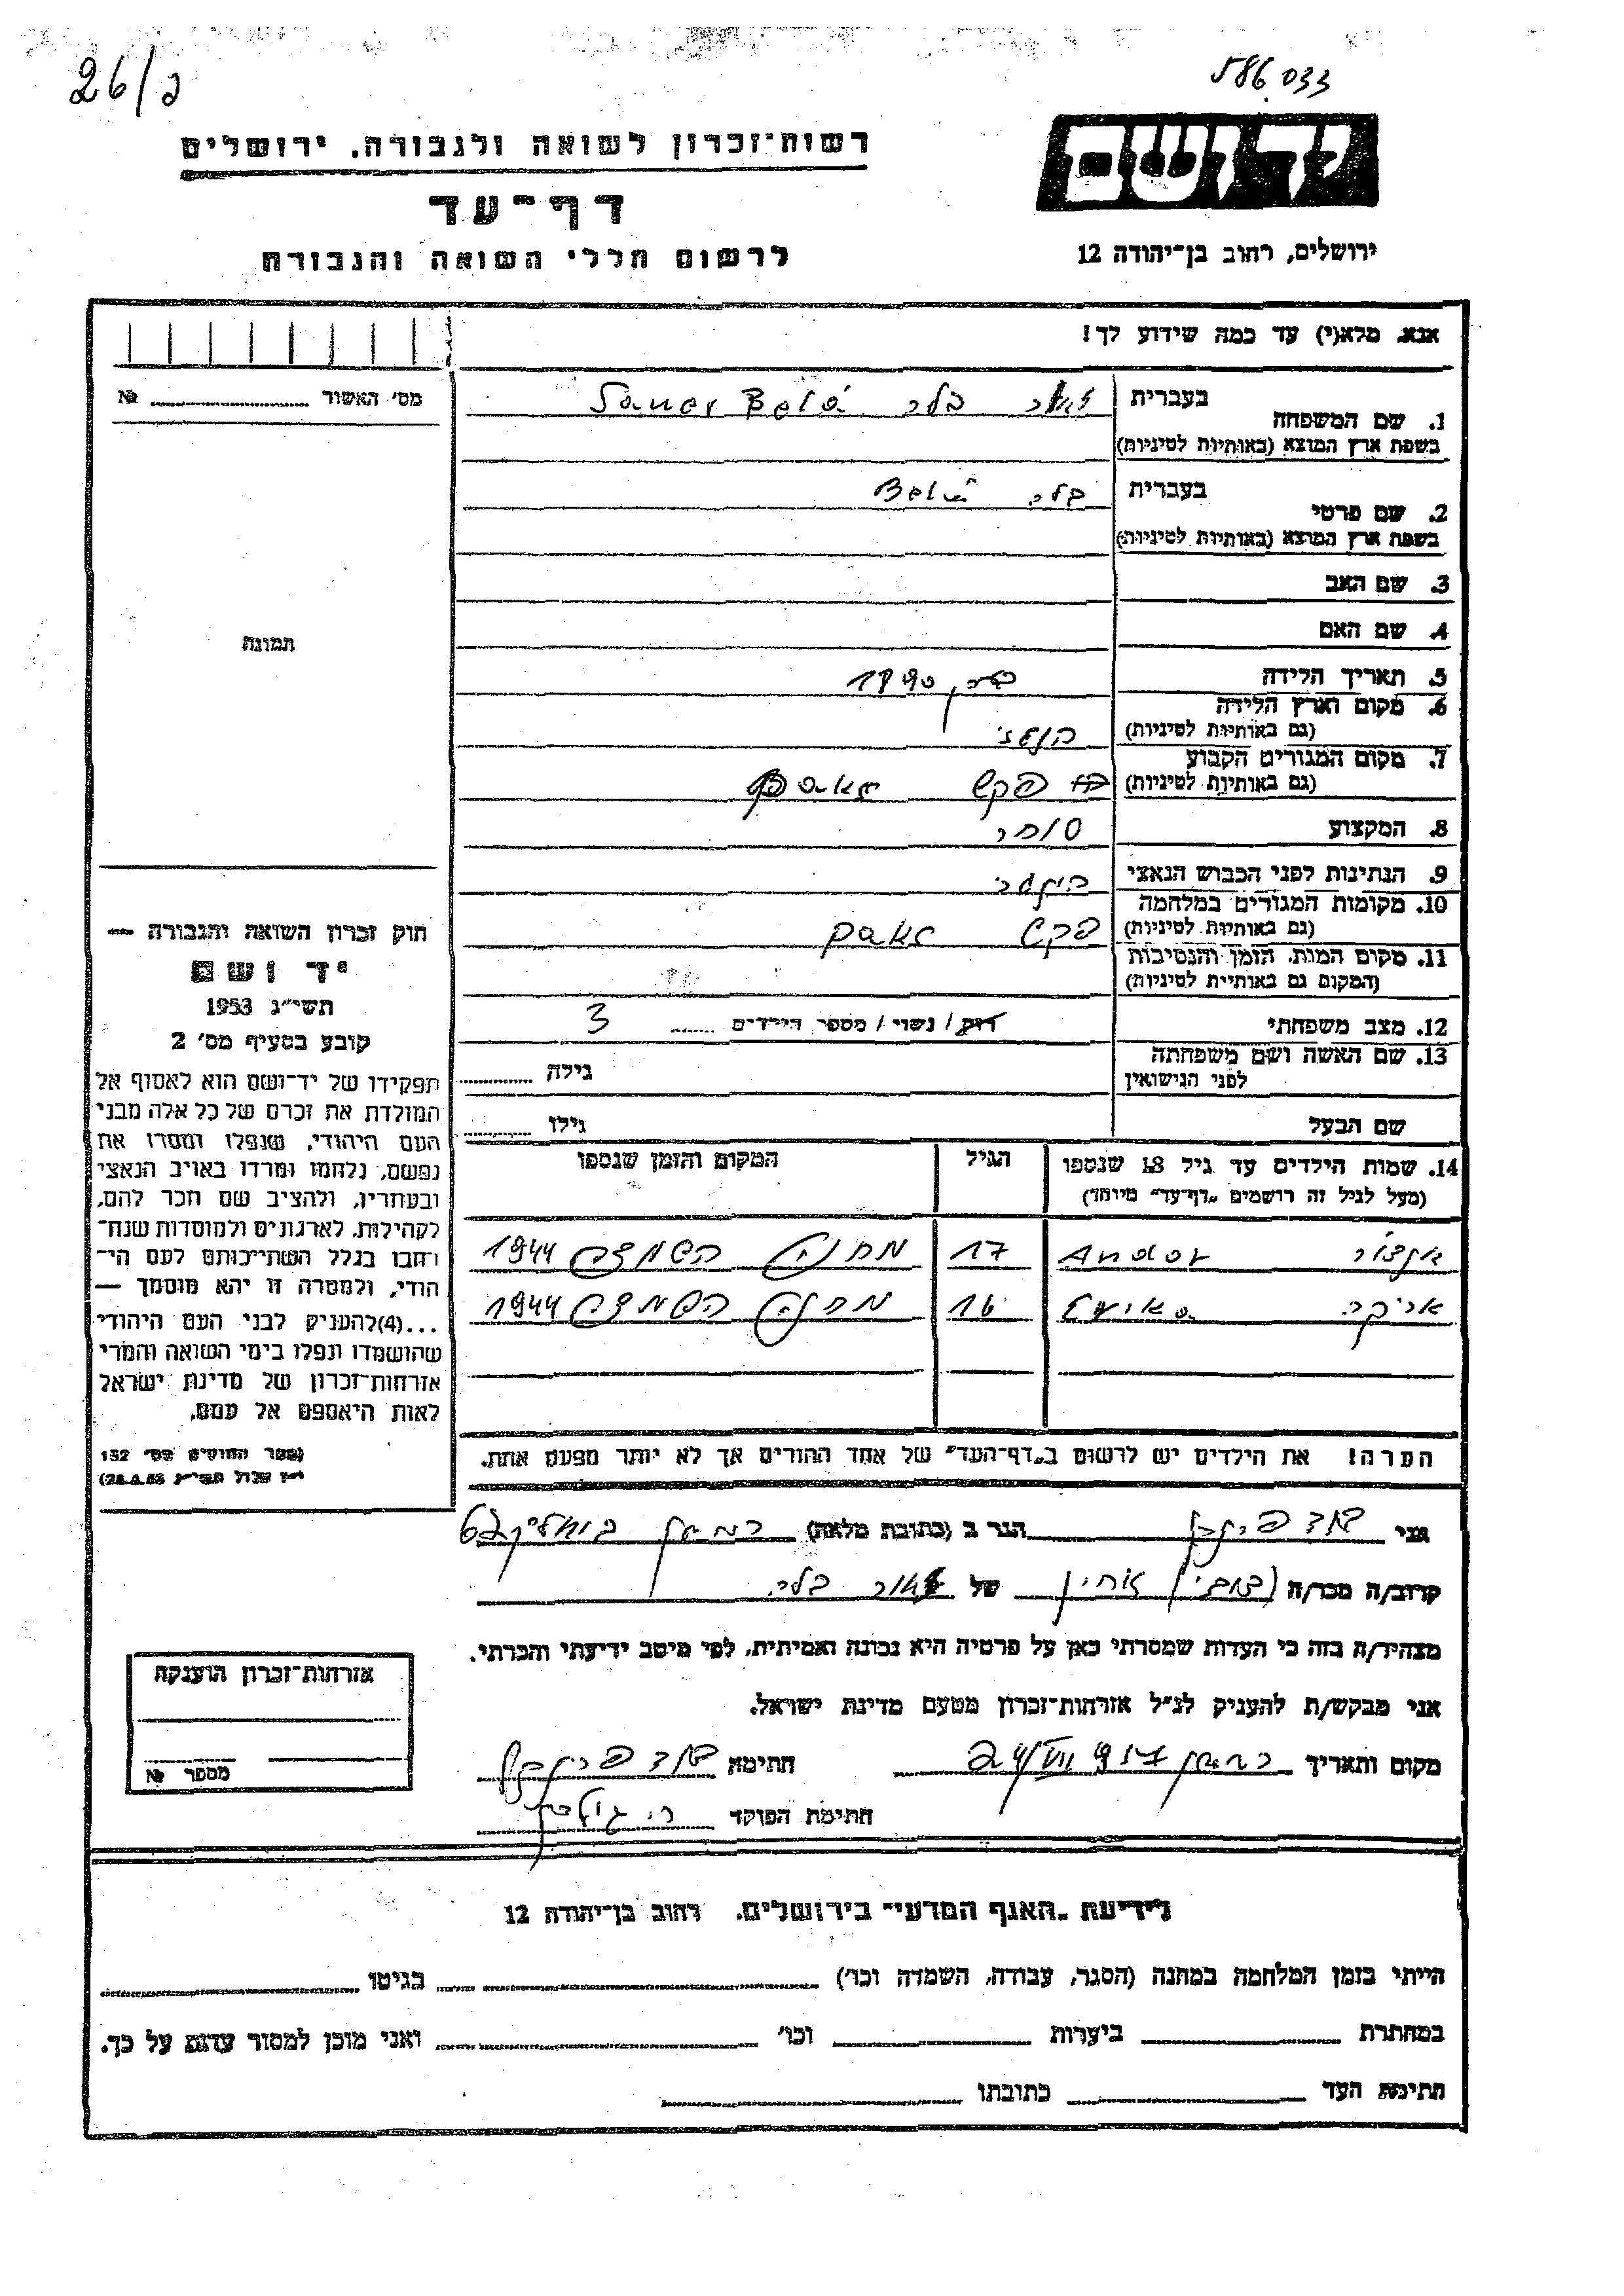 26/כ
586.033
רשות־זכרון לשואה ולגבורה, ירושלים
דף־עד
לרשום חללי השואה והגבורה
יד ושם
ירושלים, רחוב בן־יהודה 12
אנא, מלא(י) עד כמה שידוע לך!
מס׳ האשור № 
1. שם המשפחה
בעברית בלה Bela
בשפת ארץ המוצא (באותיות לטיניות)
2. שם פרטי
בעברית בלה Bela
בשפת ארץ המוצא (באותיות לטיניות)
3. שם האב
4. שם האם
תמונה
5. תאריך הלידה 1890
6. מקום וארץ הלידה
(גם באותיות לטיניות)
7. מקום המגורים הקבוע
(גם באותיות לטיניות) פקש
8. המקצוע סוחר
9. הנתינות לפני הכבוש הנאצי
10. מקומות המגורים במלחמה
(גם באותיות לטיניות) פקש
11. מקום המות, הזמן והנסיבות
(המקום גם באותיות לטיניות)
12. מצב משפחתי רווק / נשוי / מספר הילדים 3
13. שם האשה ושם משפחתה
לפני הנישואין
גילה
שם הבעל גילו
14. שמות הילדים עד גיל 18 שנספו
(מעל לגיל זה רושמים „דף־עד״ מיוחד)
הגיל
המקום והזמן שנספו
Andor 17 מחנה השמדה 1944
אריקה 16 מחנה השמדה 1944
הערה! את הילדים יש לרשום ב„דף־העד״ של אחד ההורים אך לא יותר מפעם אחת.
חוק זכרון השואה והגבורה —
יד ושם
תשי״ג 1953
קובע בסעיף מס׳ 2
תפקידו של יד־ושם הוא לאסוף אל
המולדת את זכרם של כל אלה מבני
העם היהודי, שנפלו ומסרו את
נפשם, נלחמו ומרדו באויב הנאצי
ובעוזריו, ולהציב שם וזכר להם,
לקהילות, לארגונים ולמוסדות שנח־
רבו בגלל השתייכותם לעם הי־
הודי, ולמטרה זו יהא מוסמך —
...(4)להעניק לבני העם היהודי
שהושמדו ונפלו בימי השואה והמרי
אזרחות־זכרון של מדינת ישראל
לאות היאספם אל עמם.
(ספר החוקים מס׳ 132
אני הגר ב (כתובת מלאה)
קרוב/ה מכר/ה של בלה
מצהיר/ה בזה כי העדות שמסרתי כאן על פרטיה היא נכונה ואמיתית, לפי מיטב ידיעתי והכרתי.
אני מבקש/ת להעניק לנ״ל אזרחות־זכרון מטעם מדינת ישראל.
מקום ותאריך חתימה
חתימת הפוקד
אזרחות־זכרון הוענקה
מספר №
לידיעת „האגף המדעי״ בירושלים. רחוב בן־יהודה 12
הייתי בזמן המלחמה במחנה (הסגר, עבודה, השמדה וכו׳) בגיטו
במחתרת ביערות וכו׳ ואני מוכן למסור עדות על כך.
חתימת העד כתובתו